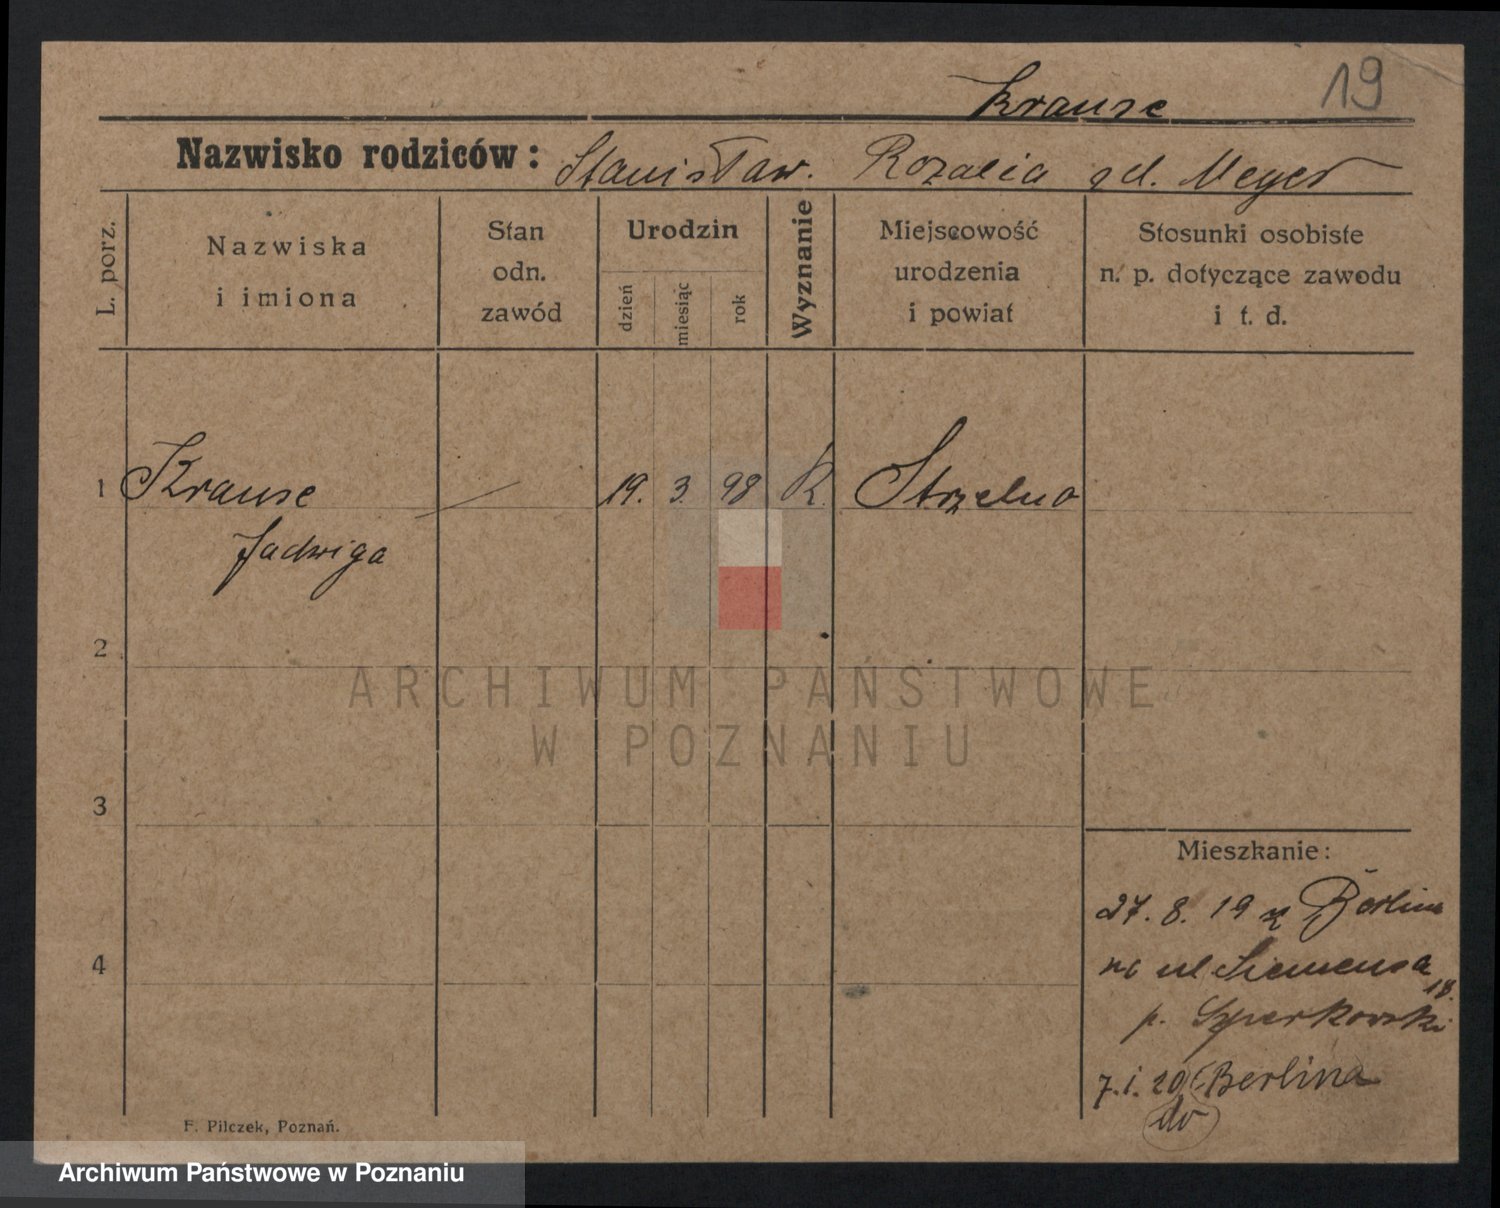 Krause 19
Nazwisko rodziców: Stanisław. Rozalia gd. Meyer
L. porz.
Nazwiska
i imiona
Stan
odn.
zawód
Urodzin
dzień
miesiąc
rok
Wyznanie
Miejscowość
urodzenia
i powiat
Stosunki osobiste
n. p. dotyczące zawodu
i t. d.
1 Krause — 19. 3. 98 K. Strzelno
Jadwiga
2
ARCHIWUM PAŃSTWOWE
W POZNANIU
3
Mieszkanie:
27. 8. 19 z Berlina
4
na ul Siemensa
18.
p. Szperkowski
7. i. 20 Berlina
do
F. Pilczek, Poznań.
Archiwum Państwowe w Poznaniu